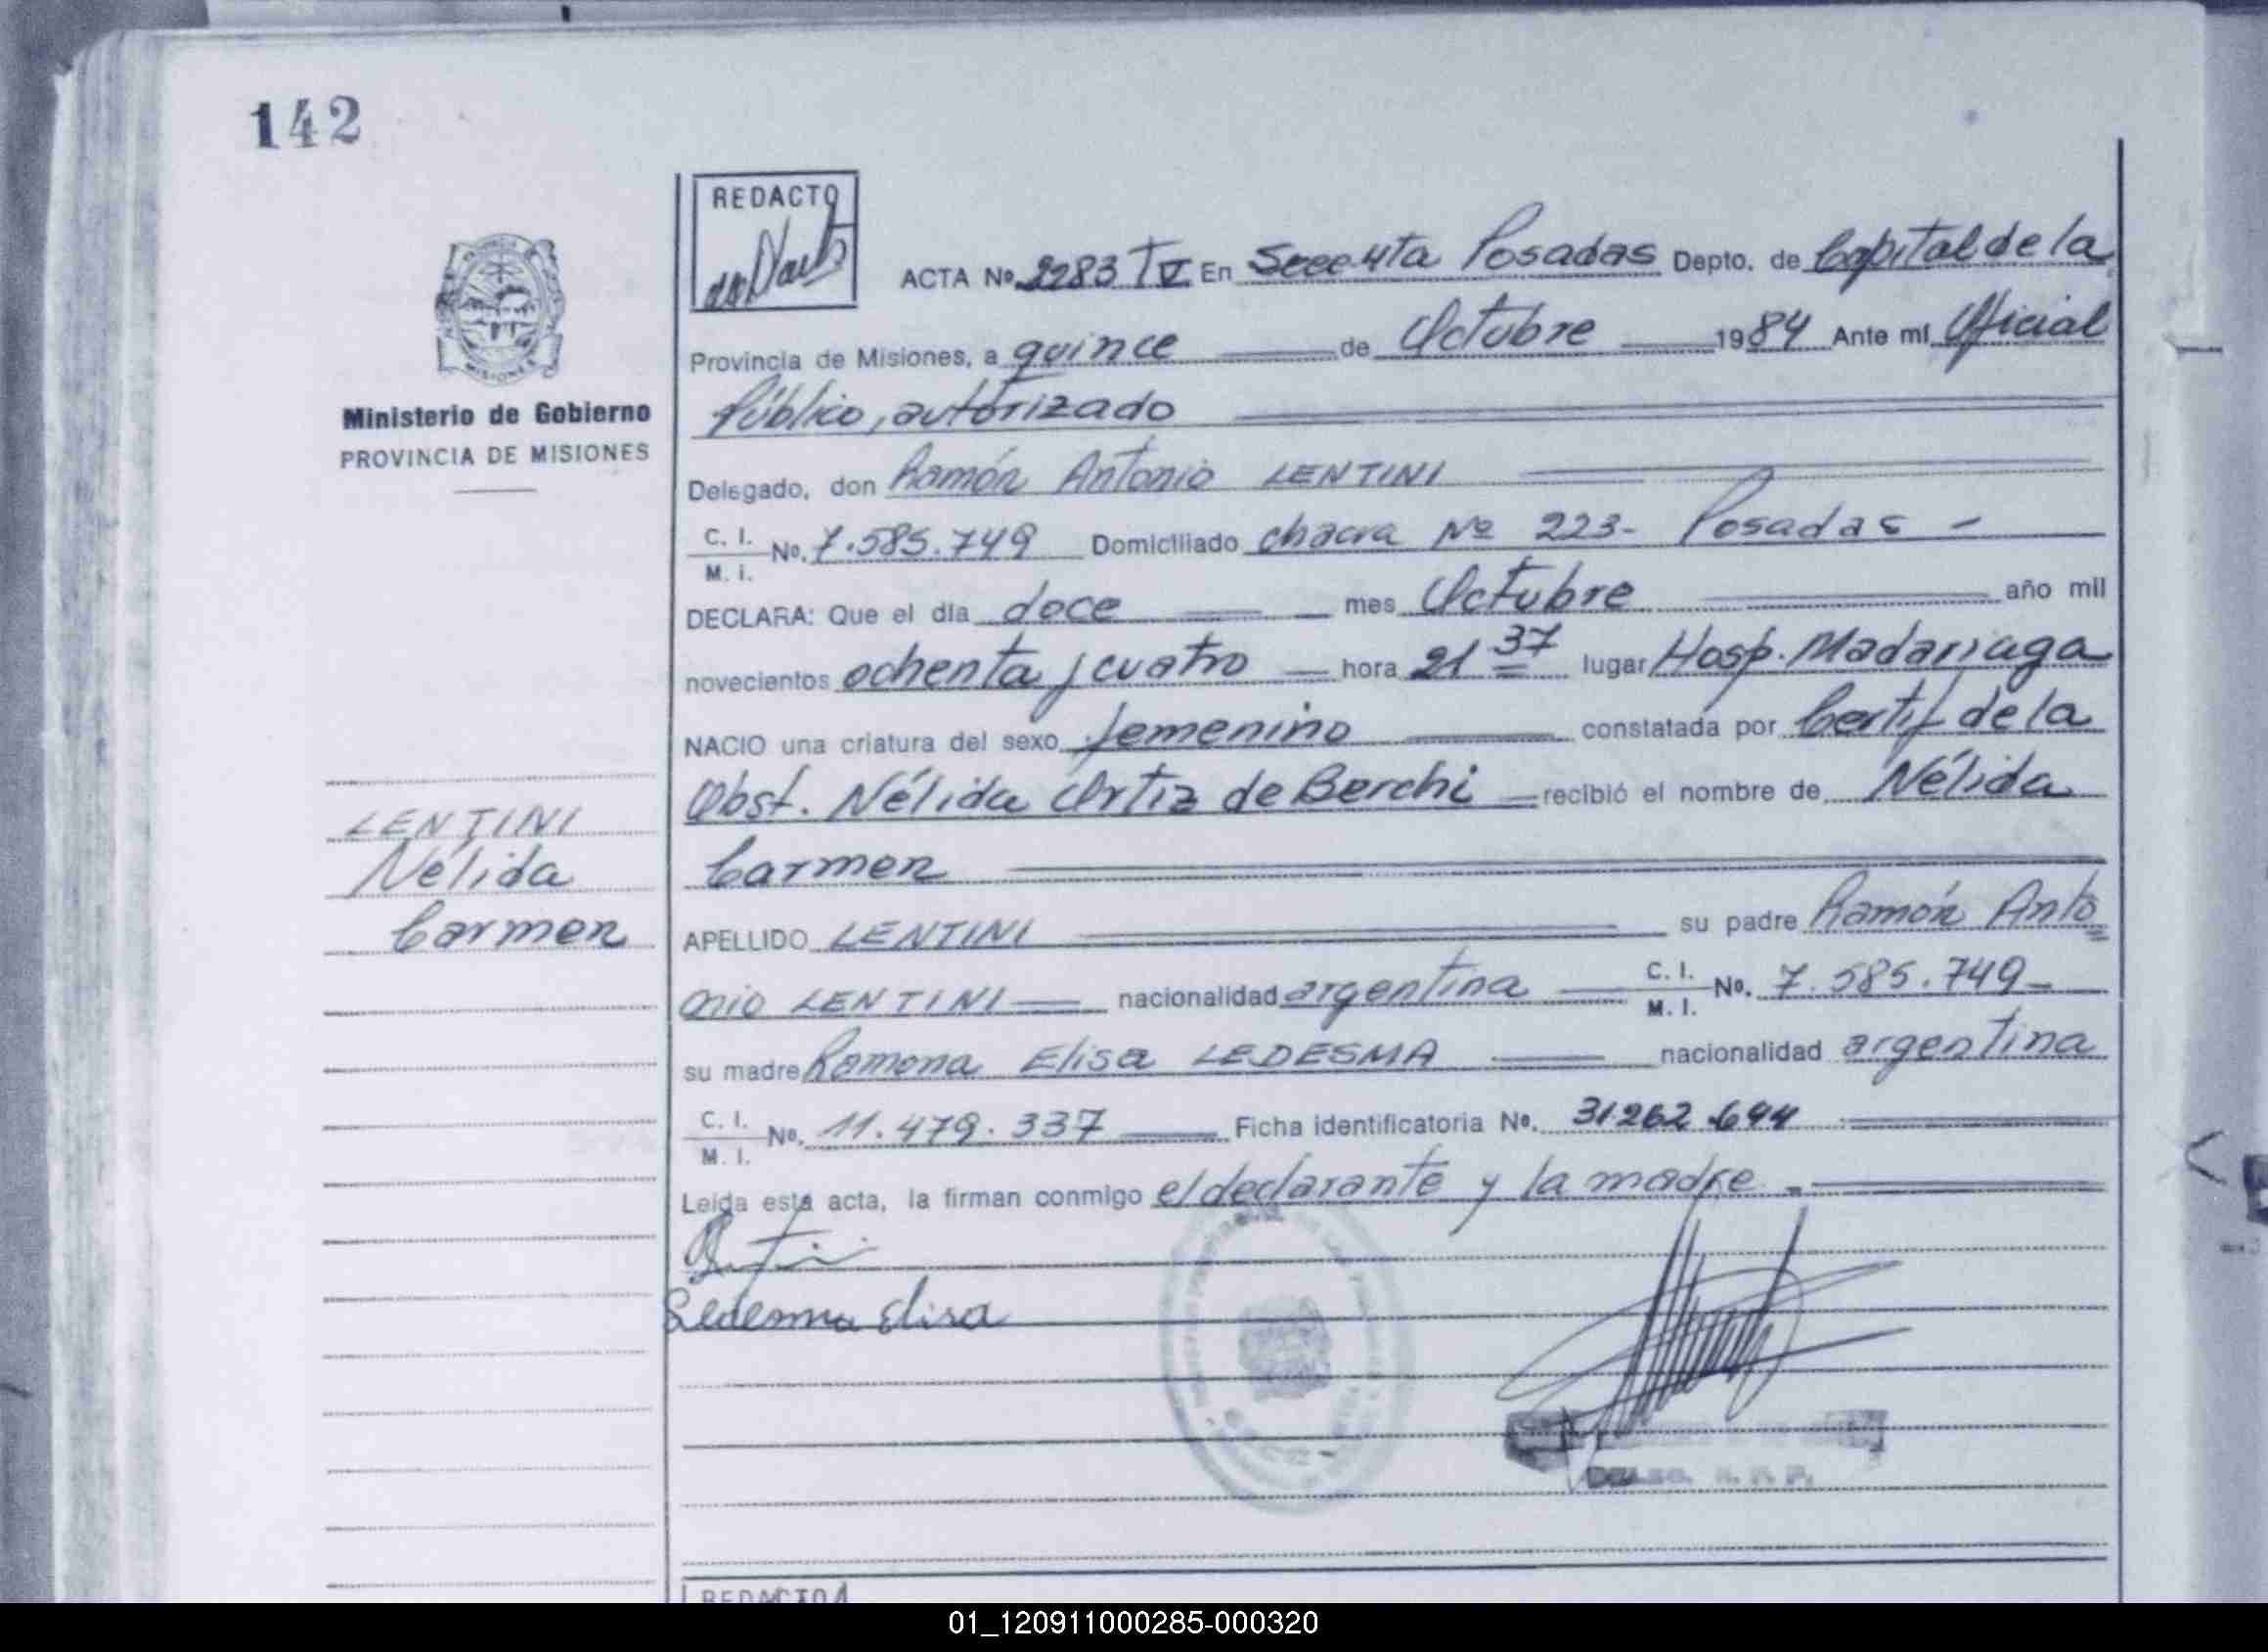 142
REDACTO
ACTA Nº 2283 TIV En Secc 4ta Posadas Depto. de Capital de la
Provincia de Misiones, a quince de Octubre 1984 Ante mí Oficial
Público, autorizado
Delegado, don Ramón Antonio LENTINI
C. I.
M. I. No. 7.585.749 Domiciliado chacra Nº 223- Posadas -
DECLARA: Que el día doce mes Octubre año mil
novecientos ochenta y cuatro hora 21 37 lugar Hosp. Madariaga
NACIO una criatura del sexo femenino constatada por Certif de la
Obst. Nélida Ortiz de Berchi recibió el nombre de Nélida
Carmen
APELLIDO LENTINI su padre Ramón Anto
nio LENTINI nacionalidad argentina C. I.
M. I. No. 7.585.749
su madre Ramona Elisa LEDESMA nacionalidad argentina
C. I.
M. I. No. 11.479.337 Ficha identificatoria No. 31262.694
Leída esta acta, la firman conmigo el declarante y la madre.
Ledesma Elisa
DELEG. R. P. P.
MISIONES
Ministerio de Gobierno
PROVINCIA DE MISIONES
LENTINI
Nélida
Carmen
REDACTO
01_120911000285-000320